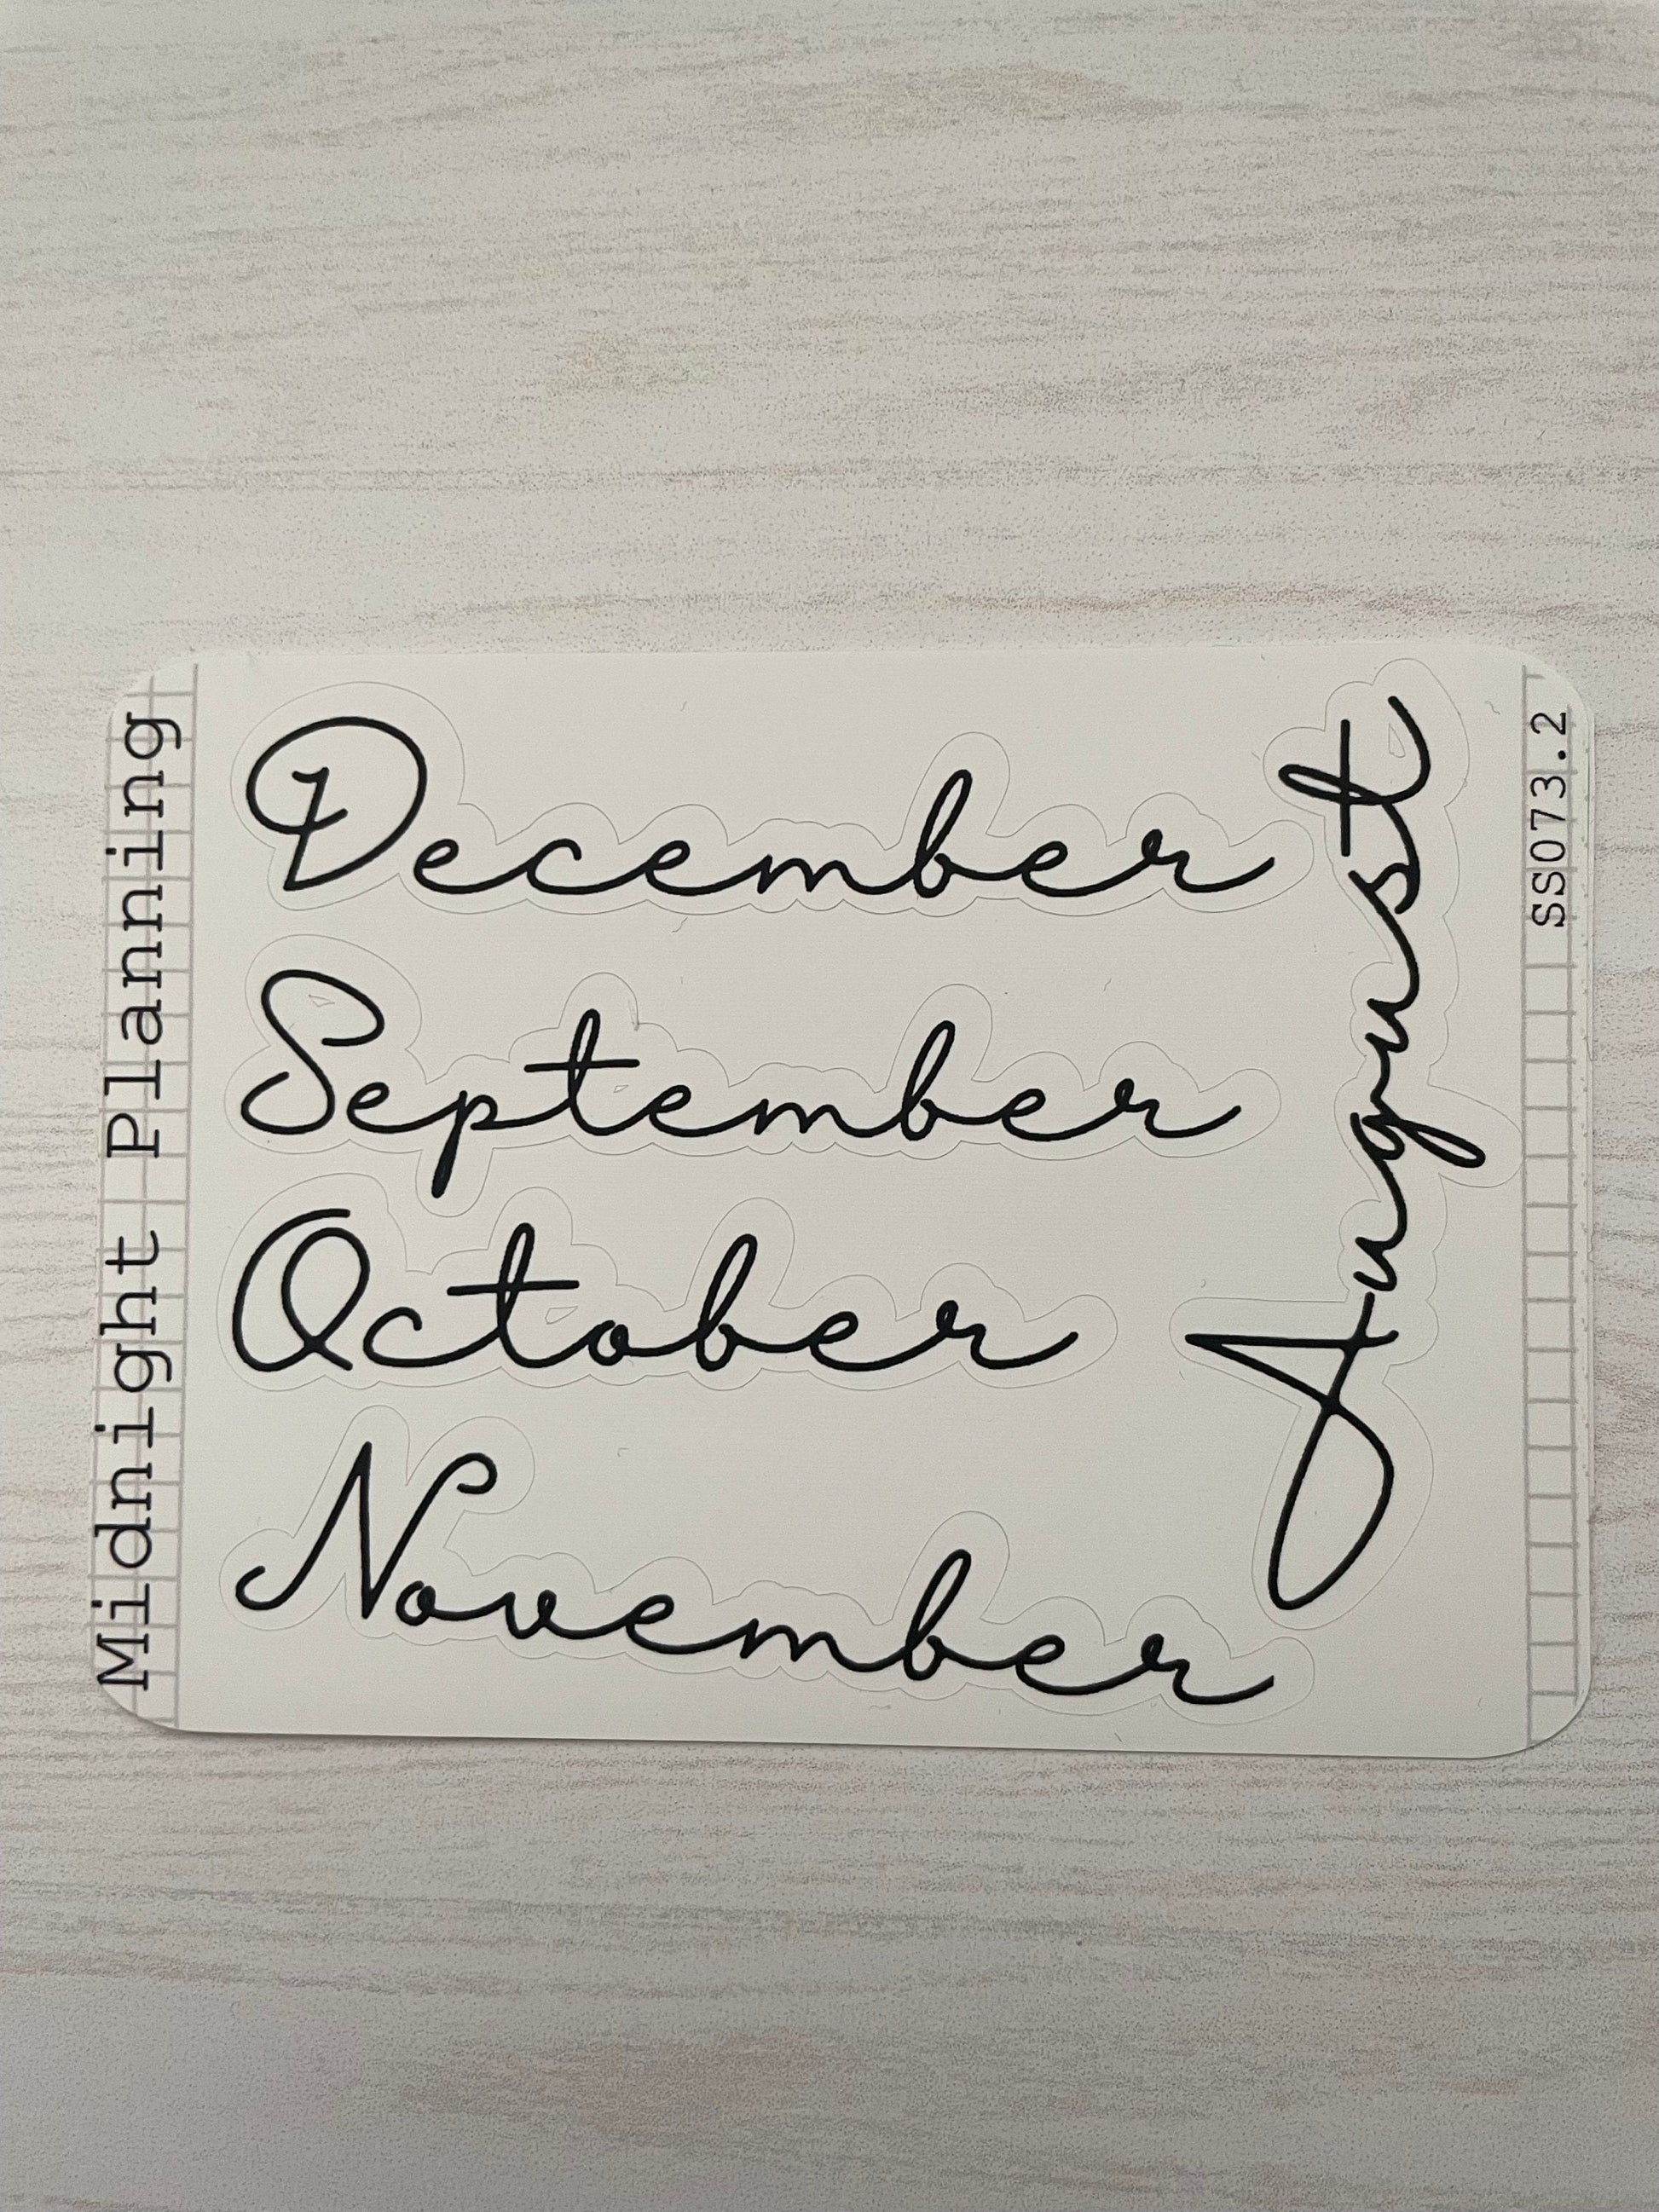 Midnight Planning
December
September
October
November
August
SS073.2